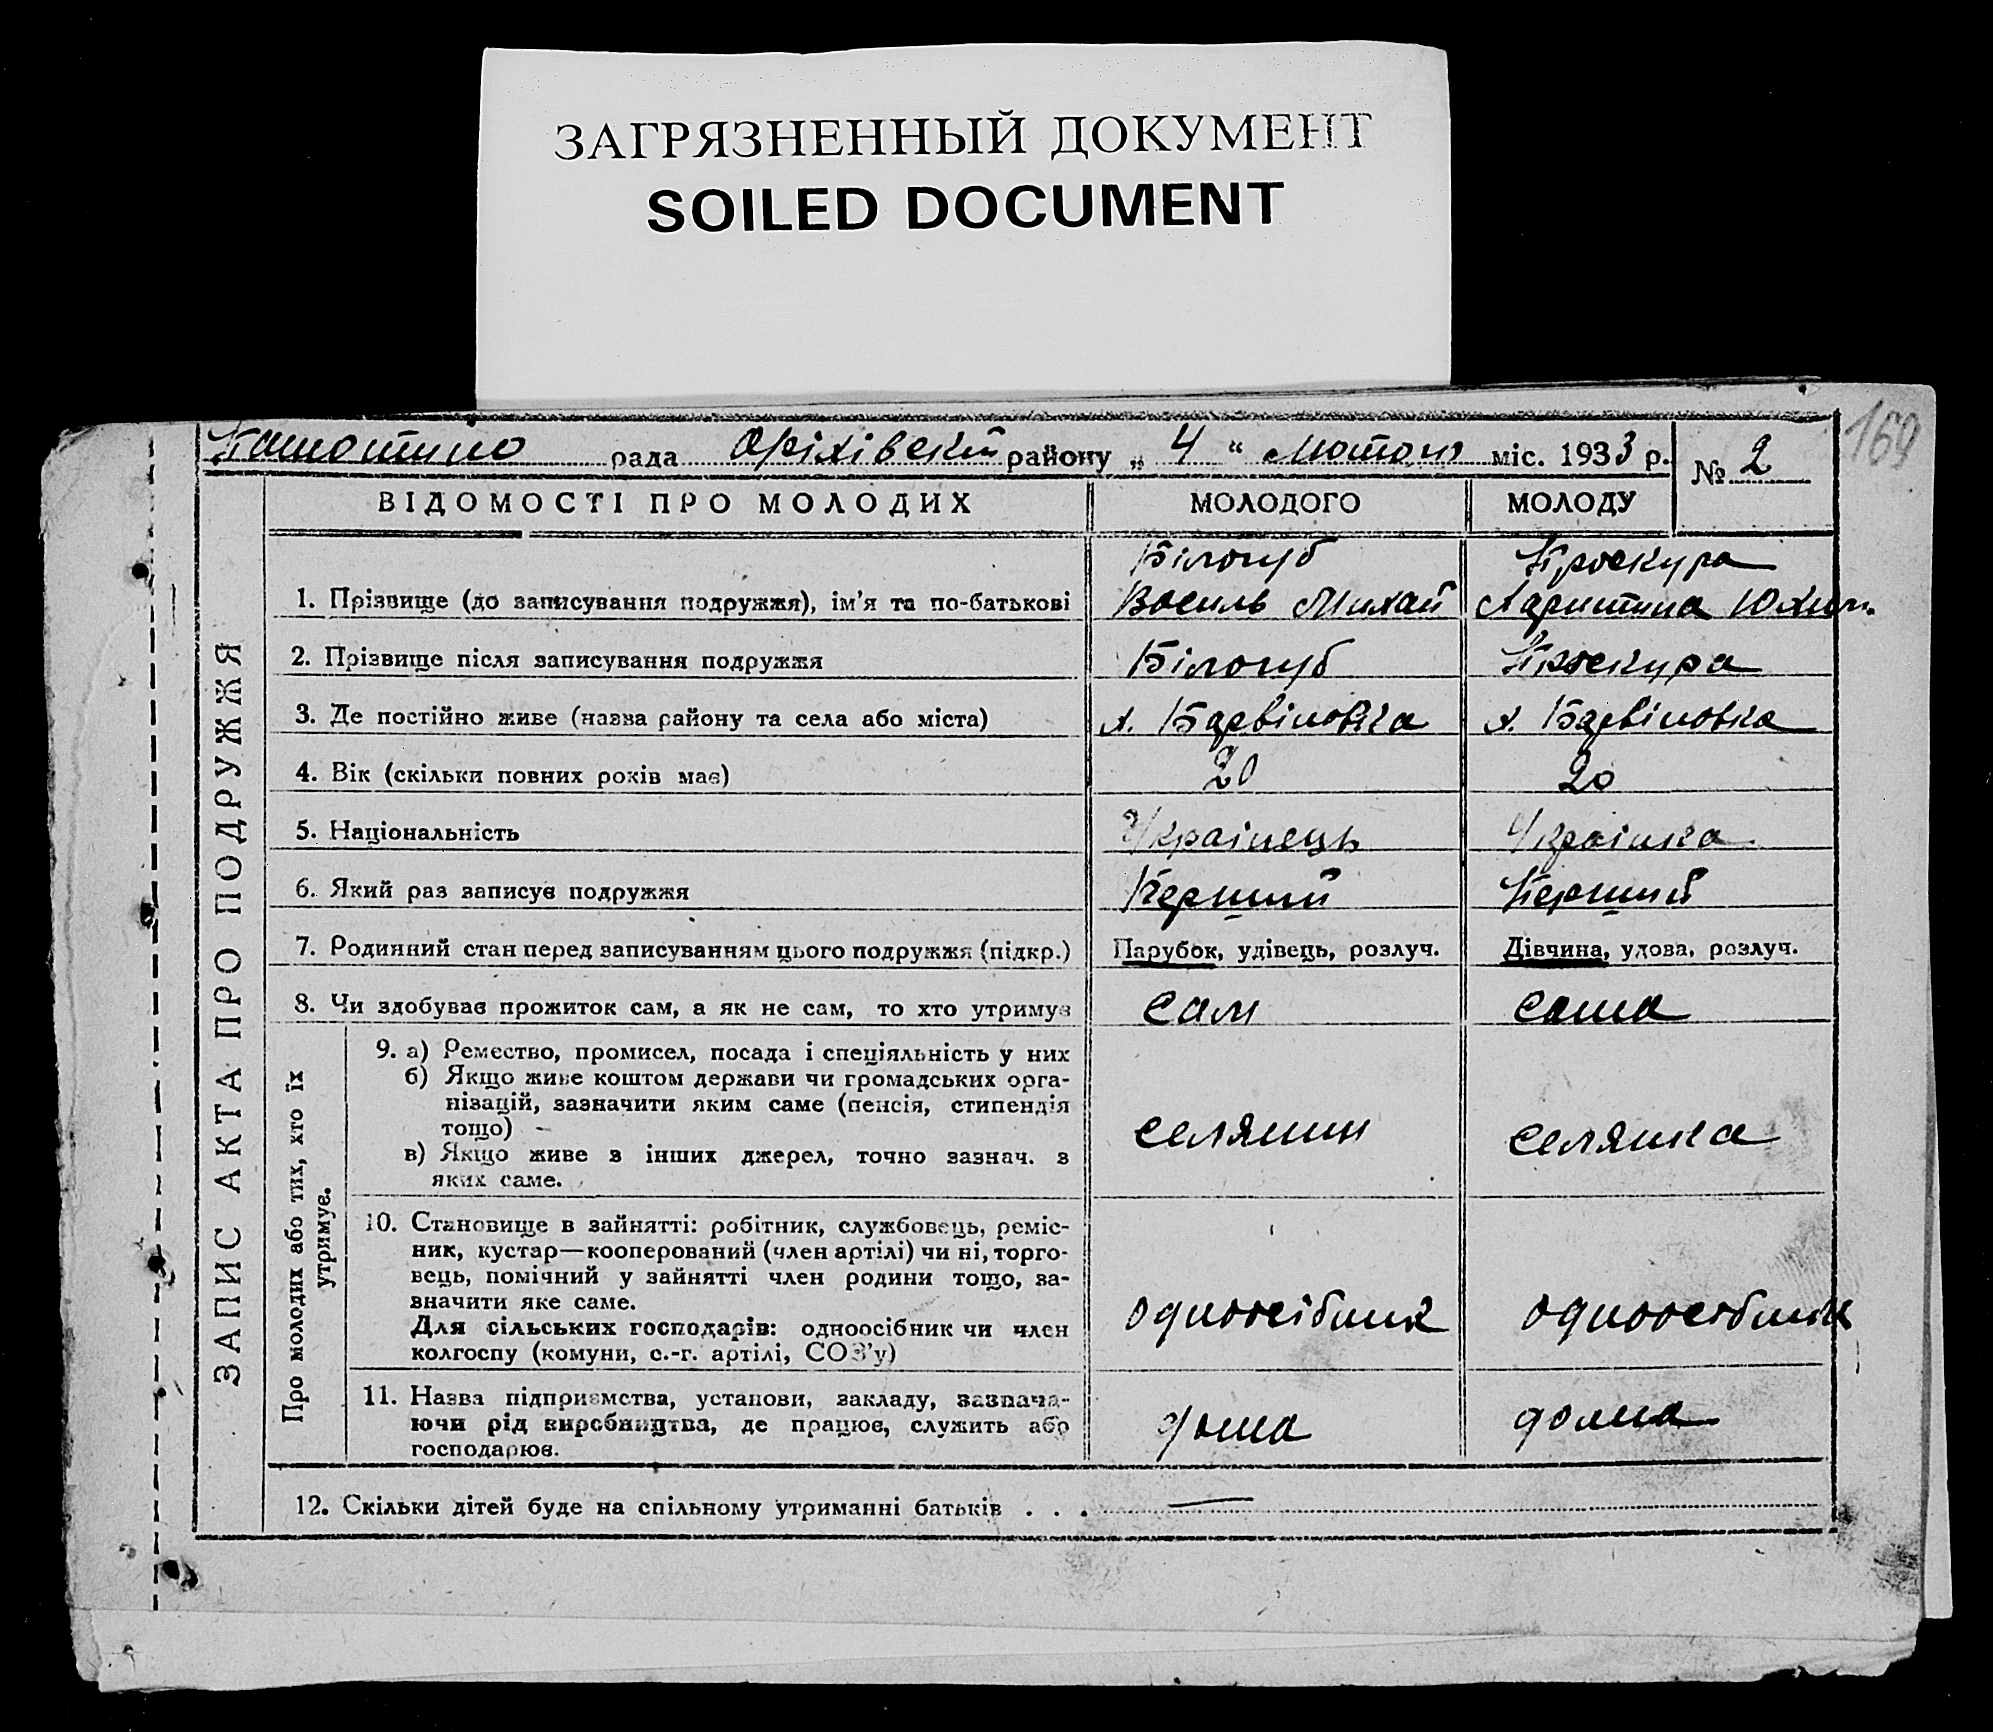 ЗАГРЯЗНЕННЫЙ ДОКУМЕНТ
SOILED DOCUMENT
169
рада Оріхівський району „ 4 “ Лютого міс. 1933 р. № 2
ВІДОМОСТІ ПРО МОЛОДИХ МОЛОДОГО МОЛОДУ
ЗАПИС АКТА ПРО ПОДРУЖЖЯ
Білогуб Проскура
1. Прізвище (до записування подружжя), ім’я та по-батькові Василь Михай Харитина Юхим.
2. Прізвище після записування подружжя Білогуб Проскура
3. Де постійно живе (назва району та села або міста) х. Барвіновка х. Барвіновка
4. Вік (скільки повних років має) 20 20
5. Національність Українець Українка
6. Який раз записує подружжя Перший Перший
7. Родинний стан перед записуванням цього подружжя (підкр.) Парубок, удівець, розлуч. Дівчина, удова, розлуч.
8. Чи здобуває прожиток сам, а як не сам, то хто утримує сам сама
Про молодих або тих, хто їх
утримує.
9. а) Ремество, промисел, посада і спеціяльність у них
б) Якщо живе коштом держави чи громадських орга-
нізацій, зазначити яким саме (пенсія, стипендія
тощо)
в) Якщо живе з інших джерел, точно зазнач. з
яких саме.
селянин селянка
10. Становище в зайнятті: робітник, службовець, реміс-
ник, кустар—кооперований (член артілі) чи ні, торго-
вець, помічний у зайнятті член родини тощо, за-
значити яке саме.
Для сільських господарів: одноосібник чи член
колгоспу (комуни, с.-г. артілі, СОЗ’у)
одноосібник одноосібник
11. Назва підприємства, установи, закладу, зазнача-
ючи рід виробництва, де працює, служить або
господарює.
дома дома
12. Скільки дітей буде на спільному утриманні батьків . . . —